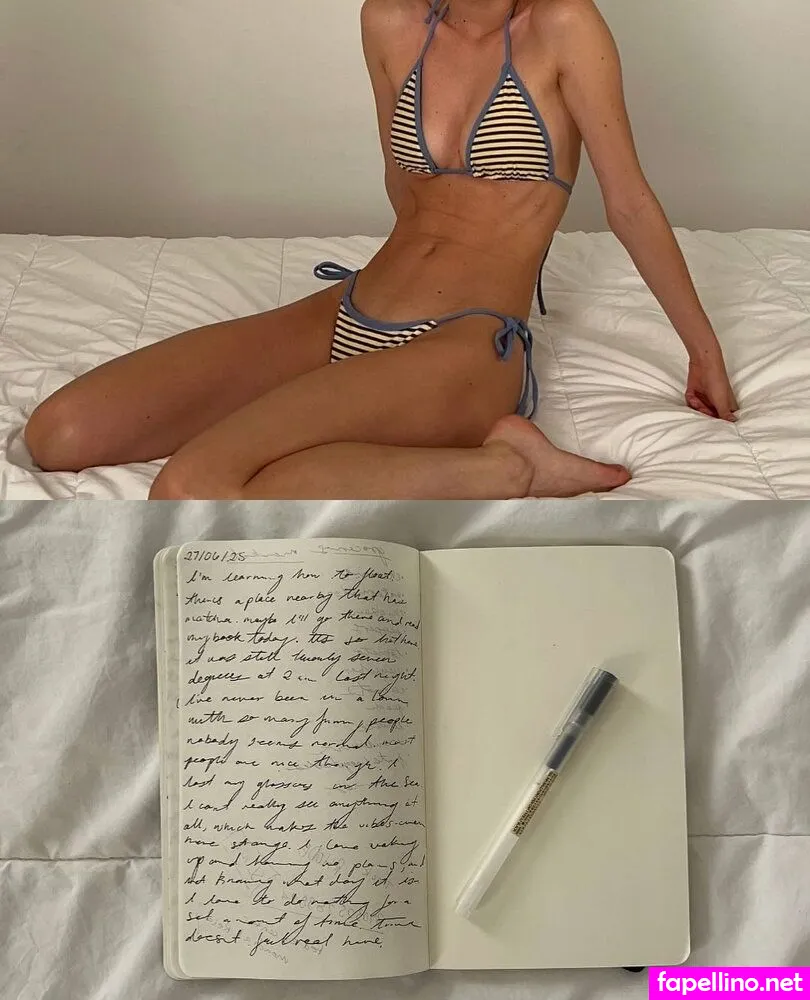 27/06/25
I'm learning how to float.
there's a place nearby that has
matcha. maybe I'll go there and read
my book today. It's so hot here,
it was still twenty seven
degrees at 2am last night.
I've never been in a town
with so many funny people
nobody seems normal. most
people are nice though. I
lost my glasses in the sea
I can't really see anything at
all, which makes the vibes even
more strange. I love waking
up and having no plans, and
not knowing what day it is
I love to do nothing for a
set amount of time. time
doesn't feel real here.
fapellino.net